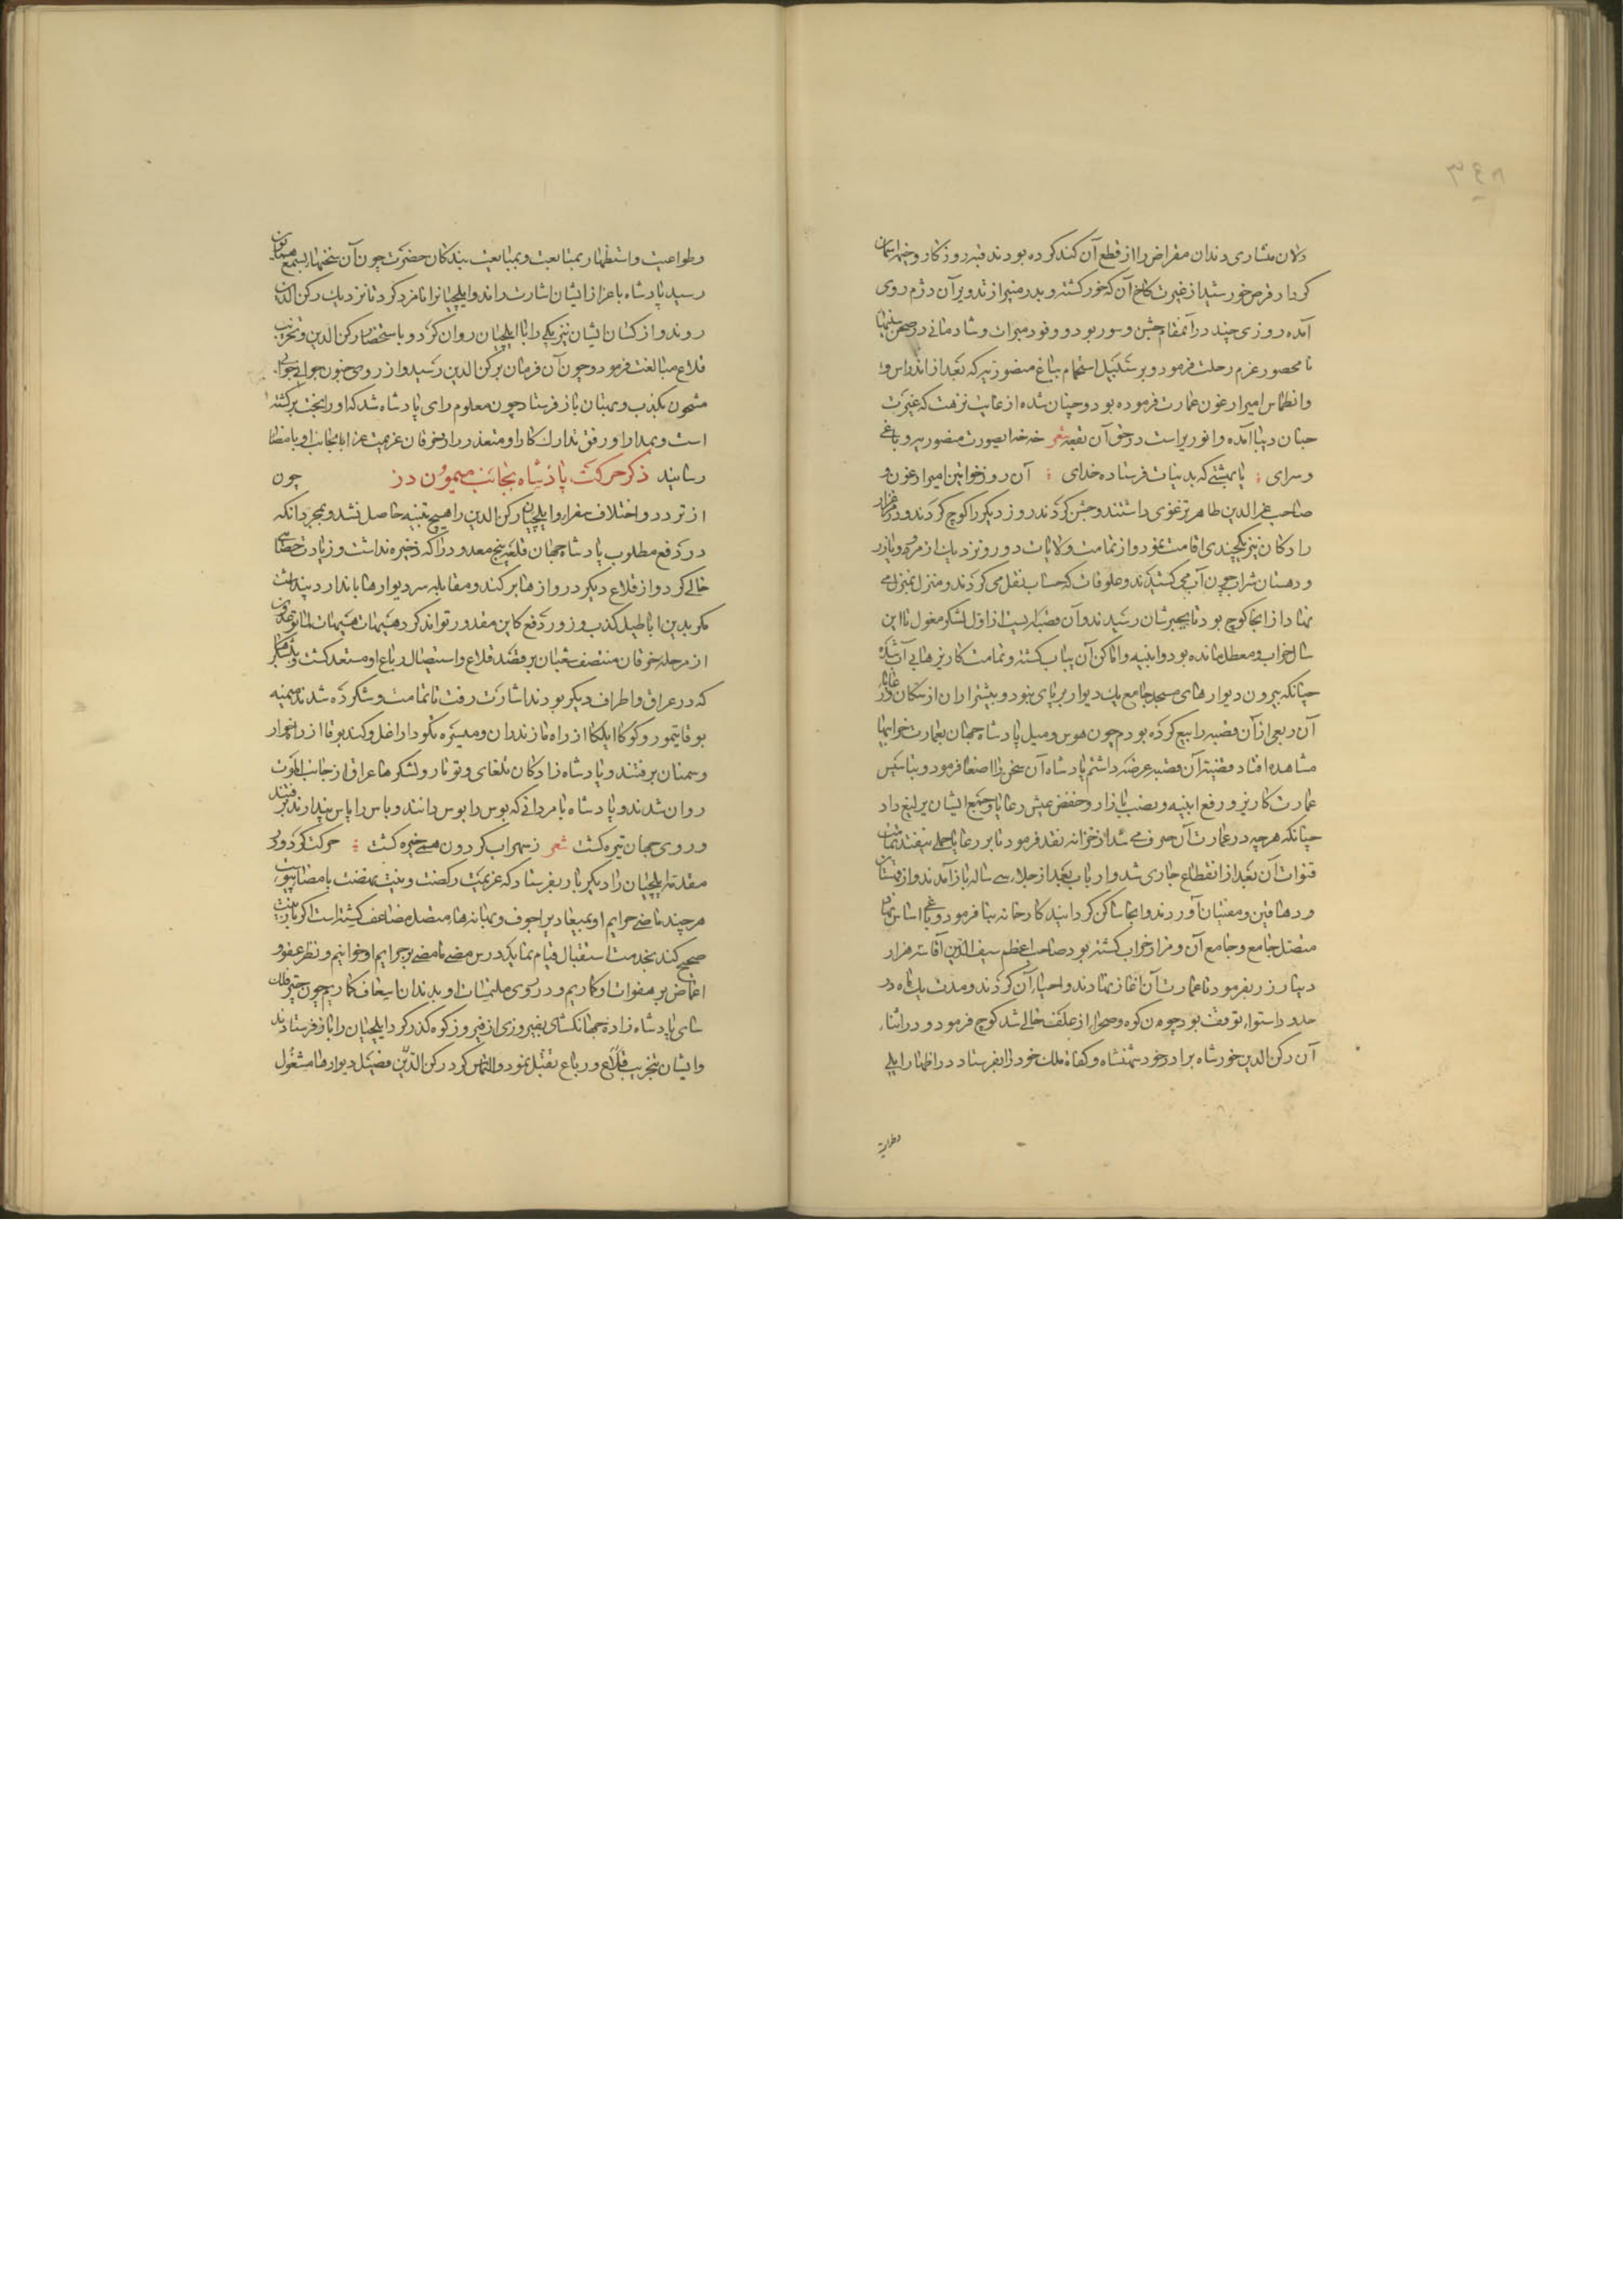 دلان منشاری دندان مقراض را از قطع آن کند کرده بودند قبه روزکار و خیمه آسمان
کردار قرص خورشید از غیرت کلاخ آن که خور کشته و بدر منیر از تدویر آن دژم روی
آمده روزی چند در آن مقام جشن و سور بود و وفود میرات و شادمانی در صحن سینها
نامحصور عزم رحلت فرمود و بر سبیل استجمام بباغ منصوریه که بعد از اندراس
و انطماس امیر ارغون عمارت فرموده بود و چنان شده از غایت نزهت که غیرت
جنان دنیا آمده و انوری راست در حق آن بقعه شعر خه خه ای صورت منصوریه و باغی
و سرای یا بهشتی که بدنیات فرستاده خدای آن روز خواتین امیر ارغون و
صاحب عز الدین طاهر ترغوی داشتند و جشن کردند روز دیکر را کوچ کردند و در مرغزار
رادکان نیز یکچندی اقامت نمود و از تمامت ولایات دور و نزدیک از مرو و یازر
و دهستان شراب چون آب می کشیدند و علوفات که حساب نقل می کردند و منزل بمنزل می
نهاد از آنجا کوچ بود تا بخبوشان رسیدند و آن قصبه ایست از اول لشکر مغول تا این
سال خراب و معطل مانده بود و ابنیه و اماکن آن بیاب کشته و تمامت کاریزها بی آب شده
چنانکه بیرون دیوارهای مسجد جامع یک دیوار بر پای نبود و پیشتر از آن از سکان و رعایا
آن ربعی از آن قصبه را بیع کرده بودم چون هوس و میل پادشاه جهان بعمارت خرابیها
مشاهده افتاد قضیه آن قصبه عرضه داشتم پادشاه آن سخن را اصغا فرمود و بتاسیس
عمارت کاریز و رفع ابنیه و نصب بازار و خفض عیش رعایا و جمع ایشان یرلیغ داد
چنانکه هرچه در عمارت آن صرف می شد از خزانه نقد فرمود تا بر رعایا حملی نیفتد تمامت
قنوات آن بعد از انقطاع جاری شد و ارباب بعد از جلاء سی ساله باز آمدند و از قهستان
و دهاقین و مقنیان آوردند و آنجا ساکن کردانید کارخانه بنا فرمود و باغی اساس نهاد
متصل جامع و جامع آن و مزار خراب کشته بود صاحب اعظم سیف الدین آقا سه هزار
دینار زر بفرمود تا عمارت آن آغاز نهادند و احیاء آن کردند و مدت یک ماه در
حدود استوا توقف بود چون کوه و صحرا از علف خالی شد کوچ فرمود و در اثناء
آن رکن الدین خورشاه برادر خود شهنشاه و کفاة ملک خود را بفرستاد در اظهار ایلی
وطواعیت
وطواعیت و استظهار بمتابعت و بمبایعت بندکان حضرت چون آن سخنها بسمع همایون
رسید پادشاه باعزاز ایشان اشارت راند و ایلچیانرا نامزد کرد تا نزدیک رکن الدین
روند و از کسان ایشان نیز یکی را با ایلچیان روان کرد و باستحضار رکن الدین و تخریب
قلاع مبالغت فرمود و چون آن فرمان برکن الدین رسید و از روی جنون جوابی
مشحون بکذب و بهتان باز فرستاد چون معلوم رای پادشاه شد که او را بخت برکشته
است و بمدارا و رفق تدارک کار او متعذر را از خرقان عزیمت غزا بجانب او بامضا
رسانید ذکر حرکت پادشاه بجانب میمون دز چون
از تردد و اختلاف سفراء و ایلچیان رکن الدین را هیچ تنبیه حاصل نشد و بمجرد آنکه
در دفع مطلوب پادشاه جهان قلعه پنج معدود را که ذخیره نداشت و زیادت حصانتی
خالی کرد و از قلاع دیکر دروازها برکند و مقابله سر دیوارها بانداز د پنداشت
مکر بدین اباطیل کذب و زور دفع کاین مقدور تواند کرد هیهات هیهات لما توعدون
از مرحله خرقان منتصف شعبان بر قصد قلاع و استیصال رباع او مستعد کشت و بلشکرها
که در عراق و اطراف دیکر بودند اشارت رفت تا تمامت وشکرده شدند میمنه
بوقاتیمور و کوکا ایلکا از راه مازندران و میسره نکودار اغل و کتبوقا از راه خوار
و سمنان برفتند و پادشاه زادکان بلغای و توتار و لشکرها عراق از جانب الموت
روان شدند و پادشاه با مردانی که بوس را بوس دانند و باس را پاس پندارند برفتند
و روی جهان تیره کشت شعر ز سهراب کردون همی خیره کشت حرکت کرد و بر
مقدمه ایلچیان را دیکر بار بفرستاد که عزیمت رکضت و نیت نهضت بامضا پیوست
هر چند ماضی جرایم او بمعاذیر اجوف و بهانه هاء معتل مضاعف کشته است اکر باز نیت
صحیح کند بخدمت استقبال قیام نماید درس مضی ما مضی بر جرایم او خوانیم و نظر عفو و
اغماض بر هفوات او کاریم و در روی ملتمسات او بدندان اسعاف کماریم چون چتر فلک
سای پادشاه زاده جهانکشای بفیروزی از فیروزکوه کذر کرد ایلچیان را باز فرستادند
و ایشان بتخریب قلاع و رباع تقبل نمود و التماس کرد رکن الدین فصیل دیوارها مشغول